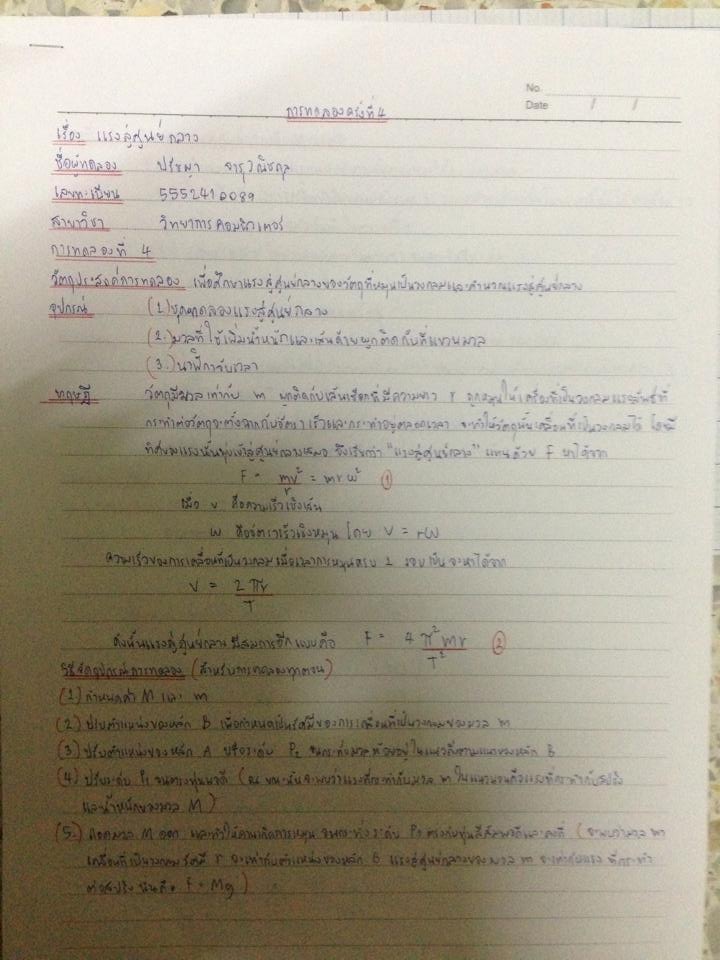 No.
Date / /
การทดลองครั้งที่ 4
เรื่อง แรงสู่ศูนย์กลาง
ชื่อผู้ทดลอง ปรัชญา
เลขทะเบียน 5552410089
สาขาวิชา วิทยาการคอมพิวเตอร์
การทดลองที่ 4
วัตถุประสงค์การทดลอง เพื่อศึกษาแรงสู่ศูนย์กลางของวัตถุที่หมุนเป็นวงกลมและคำนวณแรงสู่ศูนย์กลาง
อุปกรณ์ (1.) ชุดทดลองแรงสู่ศูนย์กลาง
(2.) มวลที่ใช้เพิ่มน้ำหนักและเส้นด้ายผูกติดกับที่แขวนมวล
(3.) นาฬิกาจับเวลา
ทฤษฎี วัตถุมีมวลเท่ากับ m ผูกติดกับเส้นเชือกที่มีความยาว r ถูกหมุนให้เคลื่อนที่เป็นวงกลมแรงลัพธ์ที่
กระทำต่อวัตถุจะตั้งฉากกับอัตราเร็วและกระทำอยู่ตลอดเวลา จะทำให้วัตถุนั้นเคลื่อนที่เป็นวงกลมได้ โดยมี
ทิศของแรงนั้นพุ่งเข้าสู่ศูนย์กลางเสมอ จึงเรียกว่า "แรงสู่ศูนย์กลาง" แทนด้วย F หาได้จาก
F = mv²/r = mrω² ①
เมื่อ v คือความเร็วเชิงเส้น
ω คืออัตราเร็วเชิงหมุน โดย v = rω
ความเร็วของการเคลื่อนที่เป็นวงกลมเมื่อเวลาการหมุนครบ 1 รอบเป็น จะหาได้จาก
v = 2πr/T
ดังนั้นแรงสู่ศูนย์กลางมีสมการอีกแบบคือ F = 4π²mr/T² ②
วิธีจัดอุปกรณ์การทดลอง (สำหรับการทดลองทุกตอน)
(1) กำหนดค่า M และ m
(2) ปรับตำแหน่งของหลัก B เพื่อกำหนดเป็นรัศมีของการเคลื่อนที่เป็นวงกลมของมวล m
(3) ปรับตำแหน่งของหลัก A หรือระดับ P₂ จนกระทั่งมวล ห้อยอยู่ในแนวดิ่งตามแนวของหลัก B
(4) ปรับระดับ P₁ จนตรงทุ่นพอดี (ณ ขณะนั้นจะพบว่าแรงที่กระทำกับมวล m ในแนวนอนคือแรงที่กระทำกับสปริง
และน้ำหนักของมวล M)
(5.) ถอดมวล M ออก และทำให้คานเกิดการหมุน จนกระทั่งระดับ P₁ ตรงกับทุ่นสีส้มพอดีและคงที่ (จะพบว่ามวล m
เคลื่อนที่เป็นวงกลม รัศมี r จะเท่ากับตำแหน่งของหลัก B แรงสู่ศูนย์กลางของมวล m จะเท่ากับแรง ที่กระทำ
ต่อสปริง นั่นคือ F = Mg)